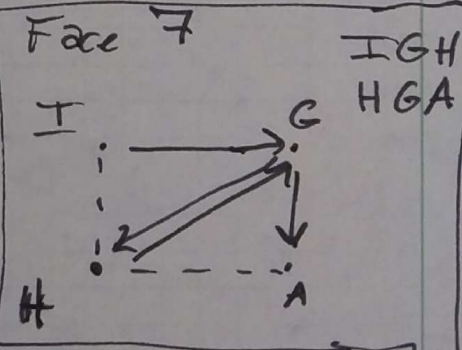 Face 7
IGH
HGA
I
G
H
A